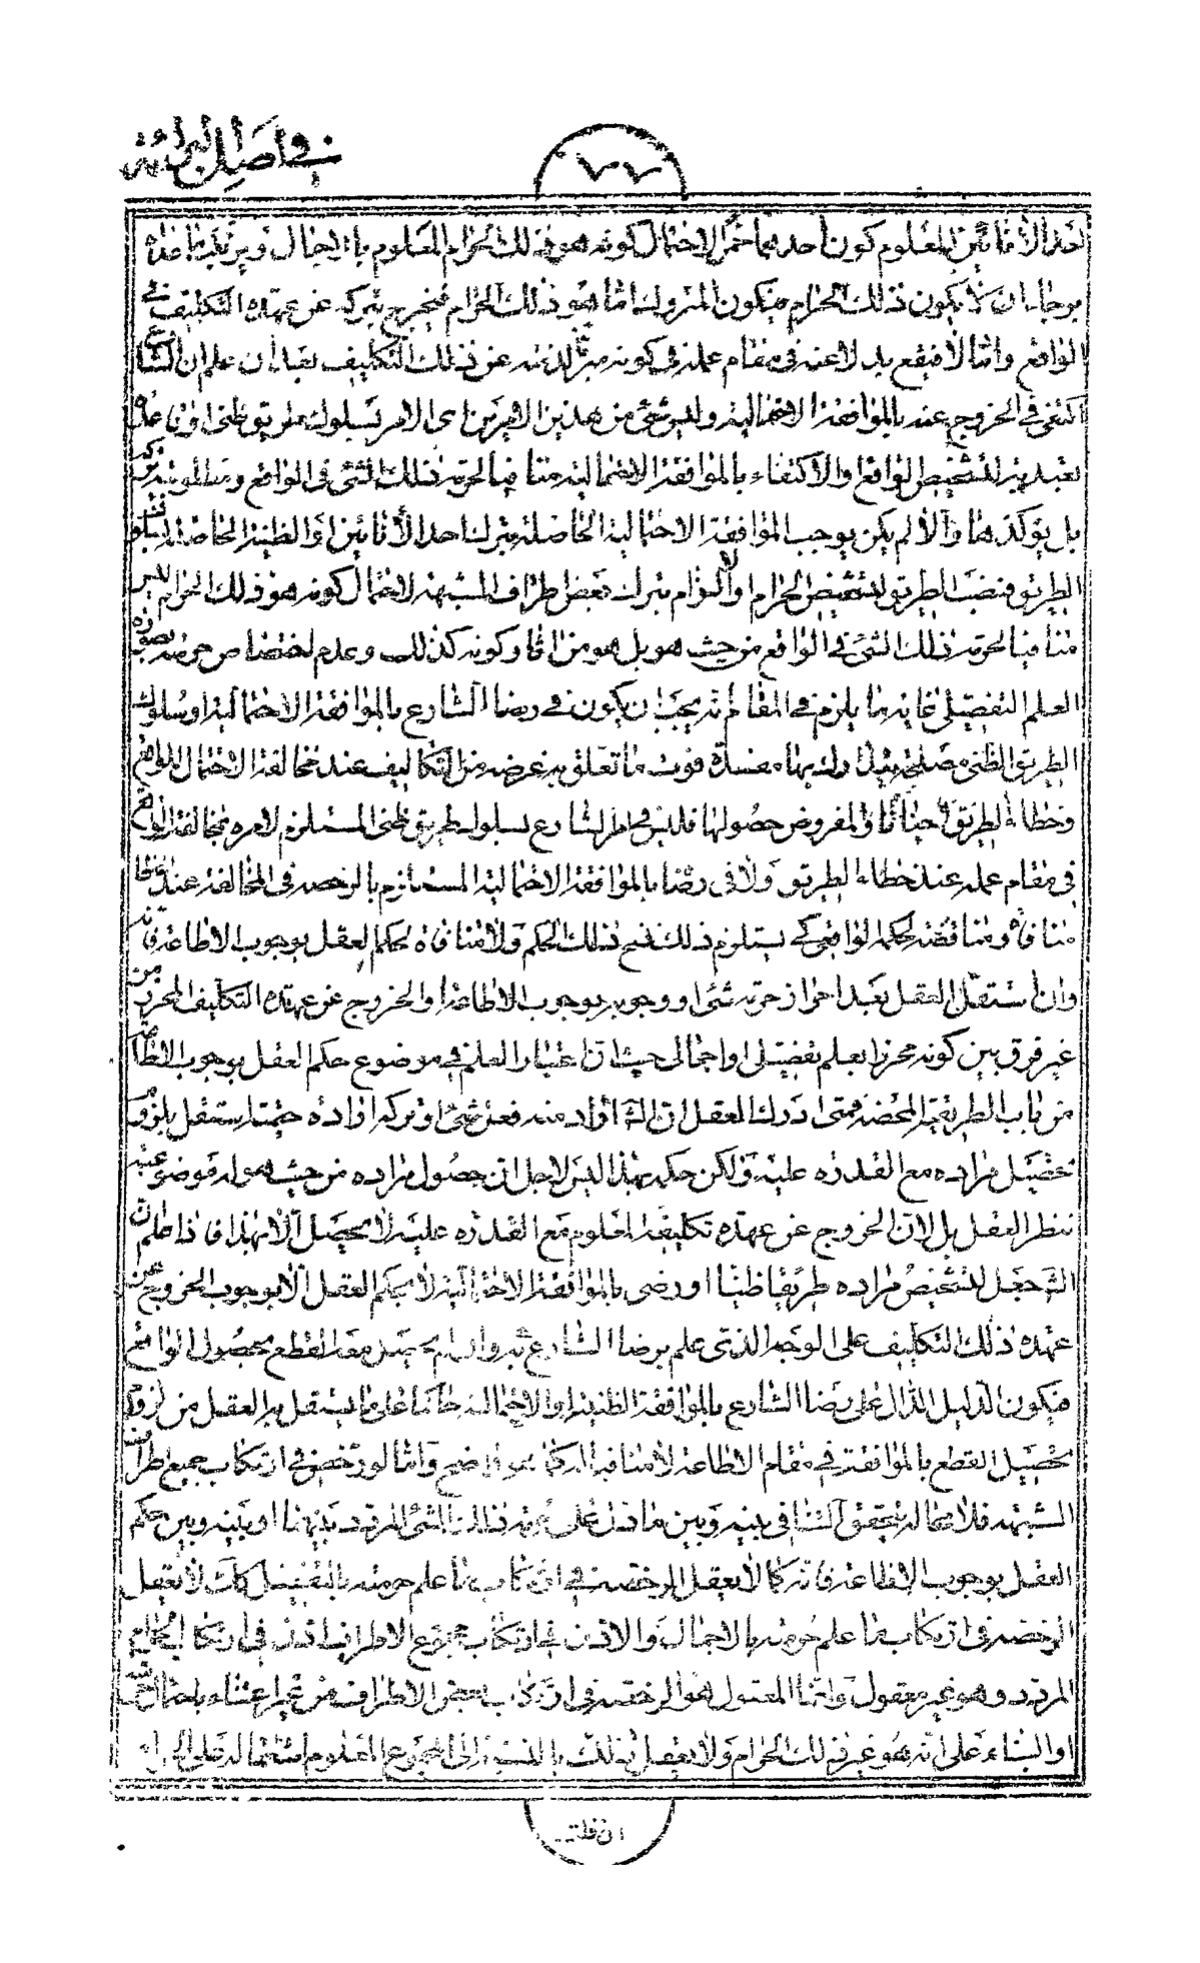 في اصل البرائة
٦٧
احد الأنائين المعلوم كون احدهما خمرا لاحتمال كونه هو ذلك الحرام المعلوم بالاجمال ويرتكب ما عداه
برجاء ان لا يكون ذلك الحرام فيكون المتروك اما هو ذلك الحرام فيخرج بتركه عن عهدة التكليف في
الواقع واما لا فيقع بدلا عنه في مقام عمله في كونه مبرئا لذمته عن ذلك التكليف بعد ان علم ان الشارع
اكتفى في الخروج عنه بالموافقة الاحتمالية وليس شئ من هذين الامرين اى الامر بسلوك طريق ظنى او
تعبد به لتشخيص الواقع والاكتفاء بالموافقة الاحتمالية منافيا لحرمة ذلك الشئ في الواقع ومطلوبية تركه
بل يؤكدهما والا لم يكن يوجب الموافقة الاحتمالية الحاصلة بترك احد الأنائين او الظنية الحاصلة بسلوك
الطريق فنصب الطريق لتشخيص الحرام او الالتزام بترك بعض اطراف الشبهة لاحتمال كونه هو ذلك الحرام ليس
منافيا لحرمة ذلك الشئ في الواقع من حيث هو بل هو من اثار كونه كذلك وعدم اختصاص حرمته بصورة
العلم التفصيلى غاية ما يلزم في المقام انه يجب ان يكون في رضا الشارع بالموافقة الاحتمالية او سلوك
الطريق الظنى مصلحة يتدارك بها مفسدة فوت ما تعلق به غرضه من التكاليف عند مخالفة الاحتمال للواقع
وخطاء الطريق احيانا والمفروض حصولها فليس في امر الشارع بسلوك طريق ظنى المستلزم لامره بمخالفة الواقع
في مقام عمله عند خطاء الطريق ولا في رضاه بالموافقة الاحتمالية المستلزم بالرخصة في المخالفة عند الخطاء
منافاة ومناقضة لحكمه الواقعى كى يستلزم ذلك نسخ ذلك الحكم ولا منافاة لحكم العقل بوجوب الاطاعة فانه
وان استقل العقل بعد احراز حرمة شئ او وجوبه بوجوب الاطاعة والخروج عن عهدة التكليف المحرز من
غير فرق بين كونه محرزا بعلم تفصيلى او اجمالى حيث ان اعتبار العلم في موضوع حكم العقل بوجوب الاطاعة
من باب الطريقية المحضة فمتى ادرك العقل ان الشارع اراد منه فعل شئ او تركه ارادة حتمية استقل بلزوم
تحصيل مراده مع القدرة عليه ولكن حكمه بهذا ليس لاجل ان حصول مراده من حيث هو له موضوعية
بنظر العقل بل لان الخروج عن عهدة تكليفه المعلوم مع القدرة عليه لا يحصل الا بهذا فاذا علم ان
الشارع جعل لتشخيص مراده طريقا ظنيا او رضى بالموافقة الاحتمالية لا يحكم العقل الا بوجوب الخروج عن
عهدة ذلك التكليف على الوجه الذى علم برضا الشارع به وان لم يحصل معه القطع بحصول الواقع
فيكون الدليل الدال على رضا الشارع بالموافقة الظنية او الاحتمالية حاكما على ما يستقل به العقل من لزوم
تحصيل القطع بالموافقة في مقام الاطاعة لا منافيا له كما هو واضح واما لو رخص في ارتكاب جميع اطراف
الشبهة فلا محالة يتحقق التنافى بينه وبين ما دل على حرمة ذلك الشئ المردد بينهما او بينه وبين حكم
العقل بوجوب الاطاعة فانه كما لا يعقل الرخصة في ارتكاب ما علم حرمته بالتفصيل كذلك لا يعقل
الرخصة في ارتكاب ما علم حرمته بالاجمال والاذن في ارتكاب مجموع الاطراف اذن في ارتكاب الحرام
المردد وهو غير معقول وانما المعقول هو الرخصة في ارتكاب بعض الاطراف من غير اعتناء باحتمال الحرمة
او البناء على انه هو غير ذلك الحرام ولا يعقل ذلك بالنسبة الى المجموع المعلوم اشتماله على الحرام
ان قلت